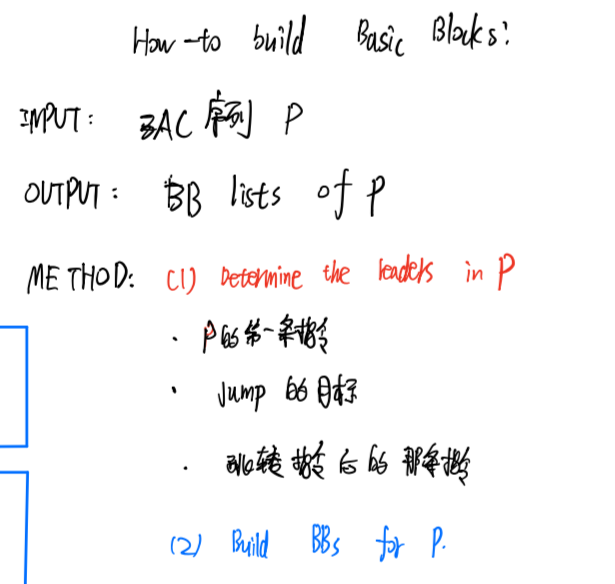 How-to build Basic Blocks:
INPUT: 3AC 序列 P
OUTPUT: BB lists of P
METHOD: (1) Determine the leaders in P
· P的第一条指令
· Jump 的目标
· 跳转指令后的那条指令
(2) Build BBs for P.